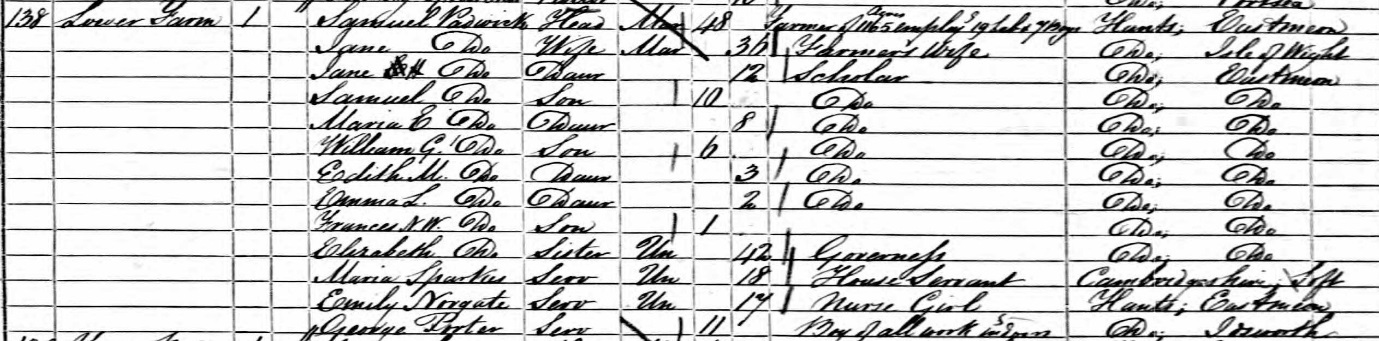 138 Lower Farm 1 Samuel Pedwick Head Mar 48 Farmer of 1165 Acres employs 19 Labs 7 Boys Hants; Eastmeon
Jane Do Wife Mar 36 Farmer's Wife Do; Isle of Wight
Jane H Do Daur 12 Scholar Do; Eastmeon
Samuel Do Son 10 Do Do; Do
Maria E Do Daur 8 Do Do; Do
William G. Do Son 6 Do Do; Do
Edith M. Do Daur 3 Do Do; Do
Emma L. Do Daur 2 Do Do; Do
Frances N.W. Do Son 1 Do; Do
Elizabeth Do Sister Un 42 Governess Do; Do
Maria Sparkes Serv Un 18 House Servant Cambridgeshire;
Emily Norgate Serv Un 17 Nurse Girl Hants; Eastmeon
George Porter Serv 11 Boy of all work indoors Do; Idsworth